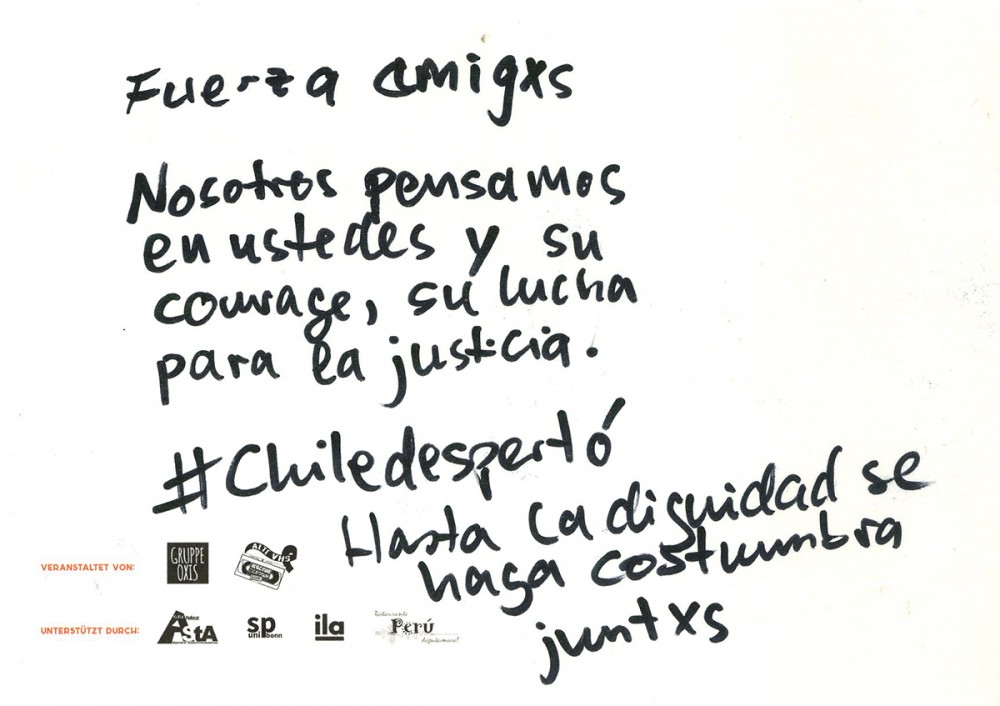 Fuerza amigxs
Nosotros pensamos
en ustedes y su
courage, su lucha
para la justicia.
#Chiledespertó
Hasta la dignidad se
haga costumbra
juntxs
VERANSTALTET VON:
GRUPPE
OXIS
ALTE VHS
UNTERSTÜTZT DURCH:
AStA
sp
uni bonn
ila
Restaurante
Perú